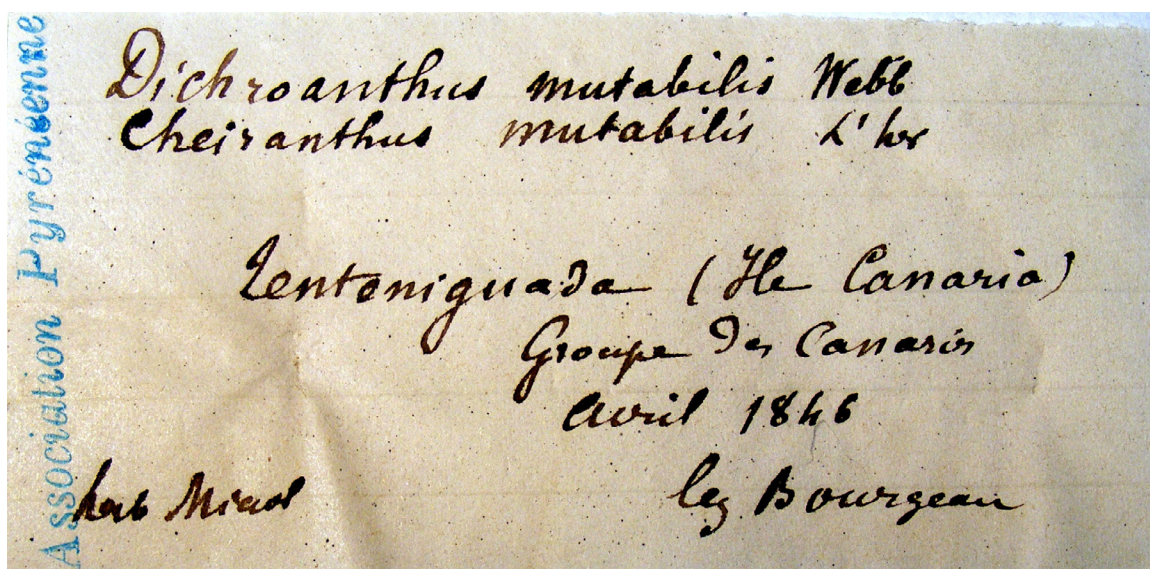 Association Pyrénéenne
Dichroanthus mutabilis Webb
Cheiranthus mutabilis L'her
Tenteniguada (Ile Canaria)
Groupe des Canaries
Avril 1846
leg Bourgeau
herb